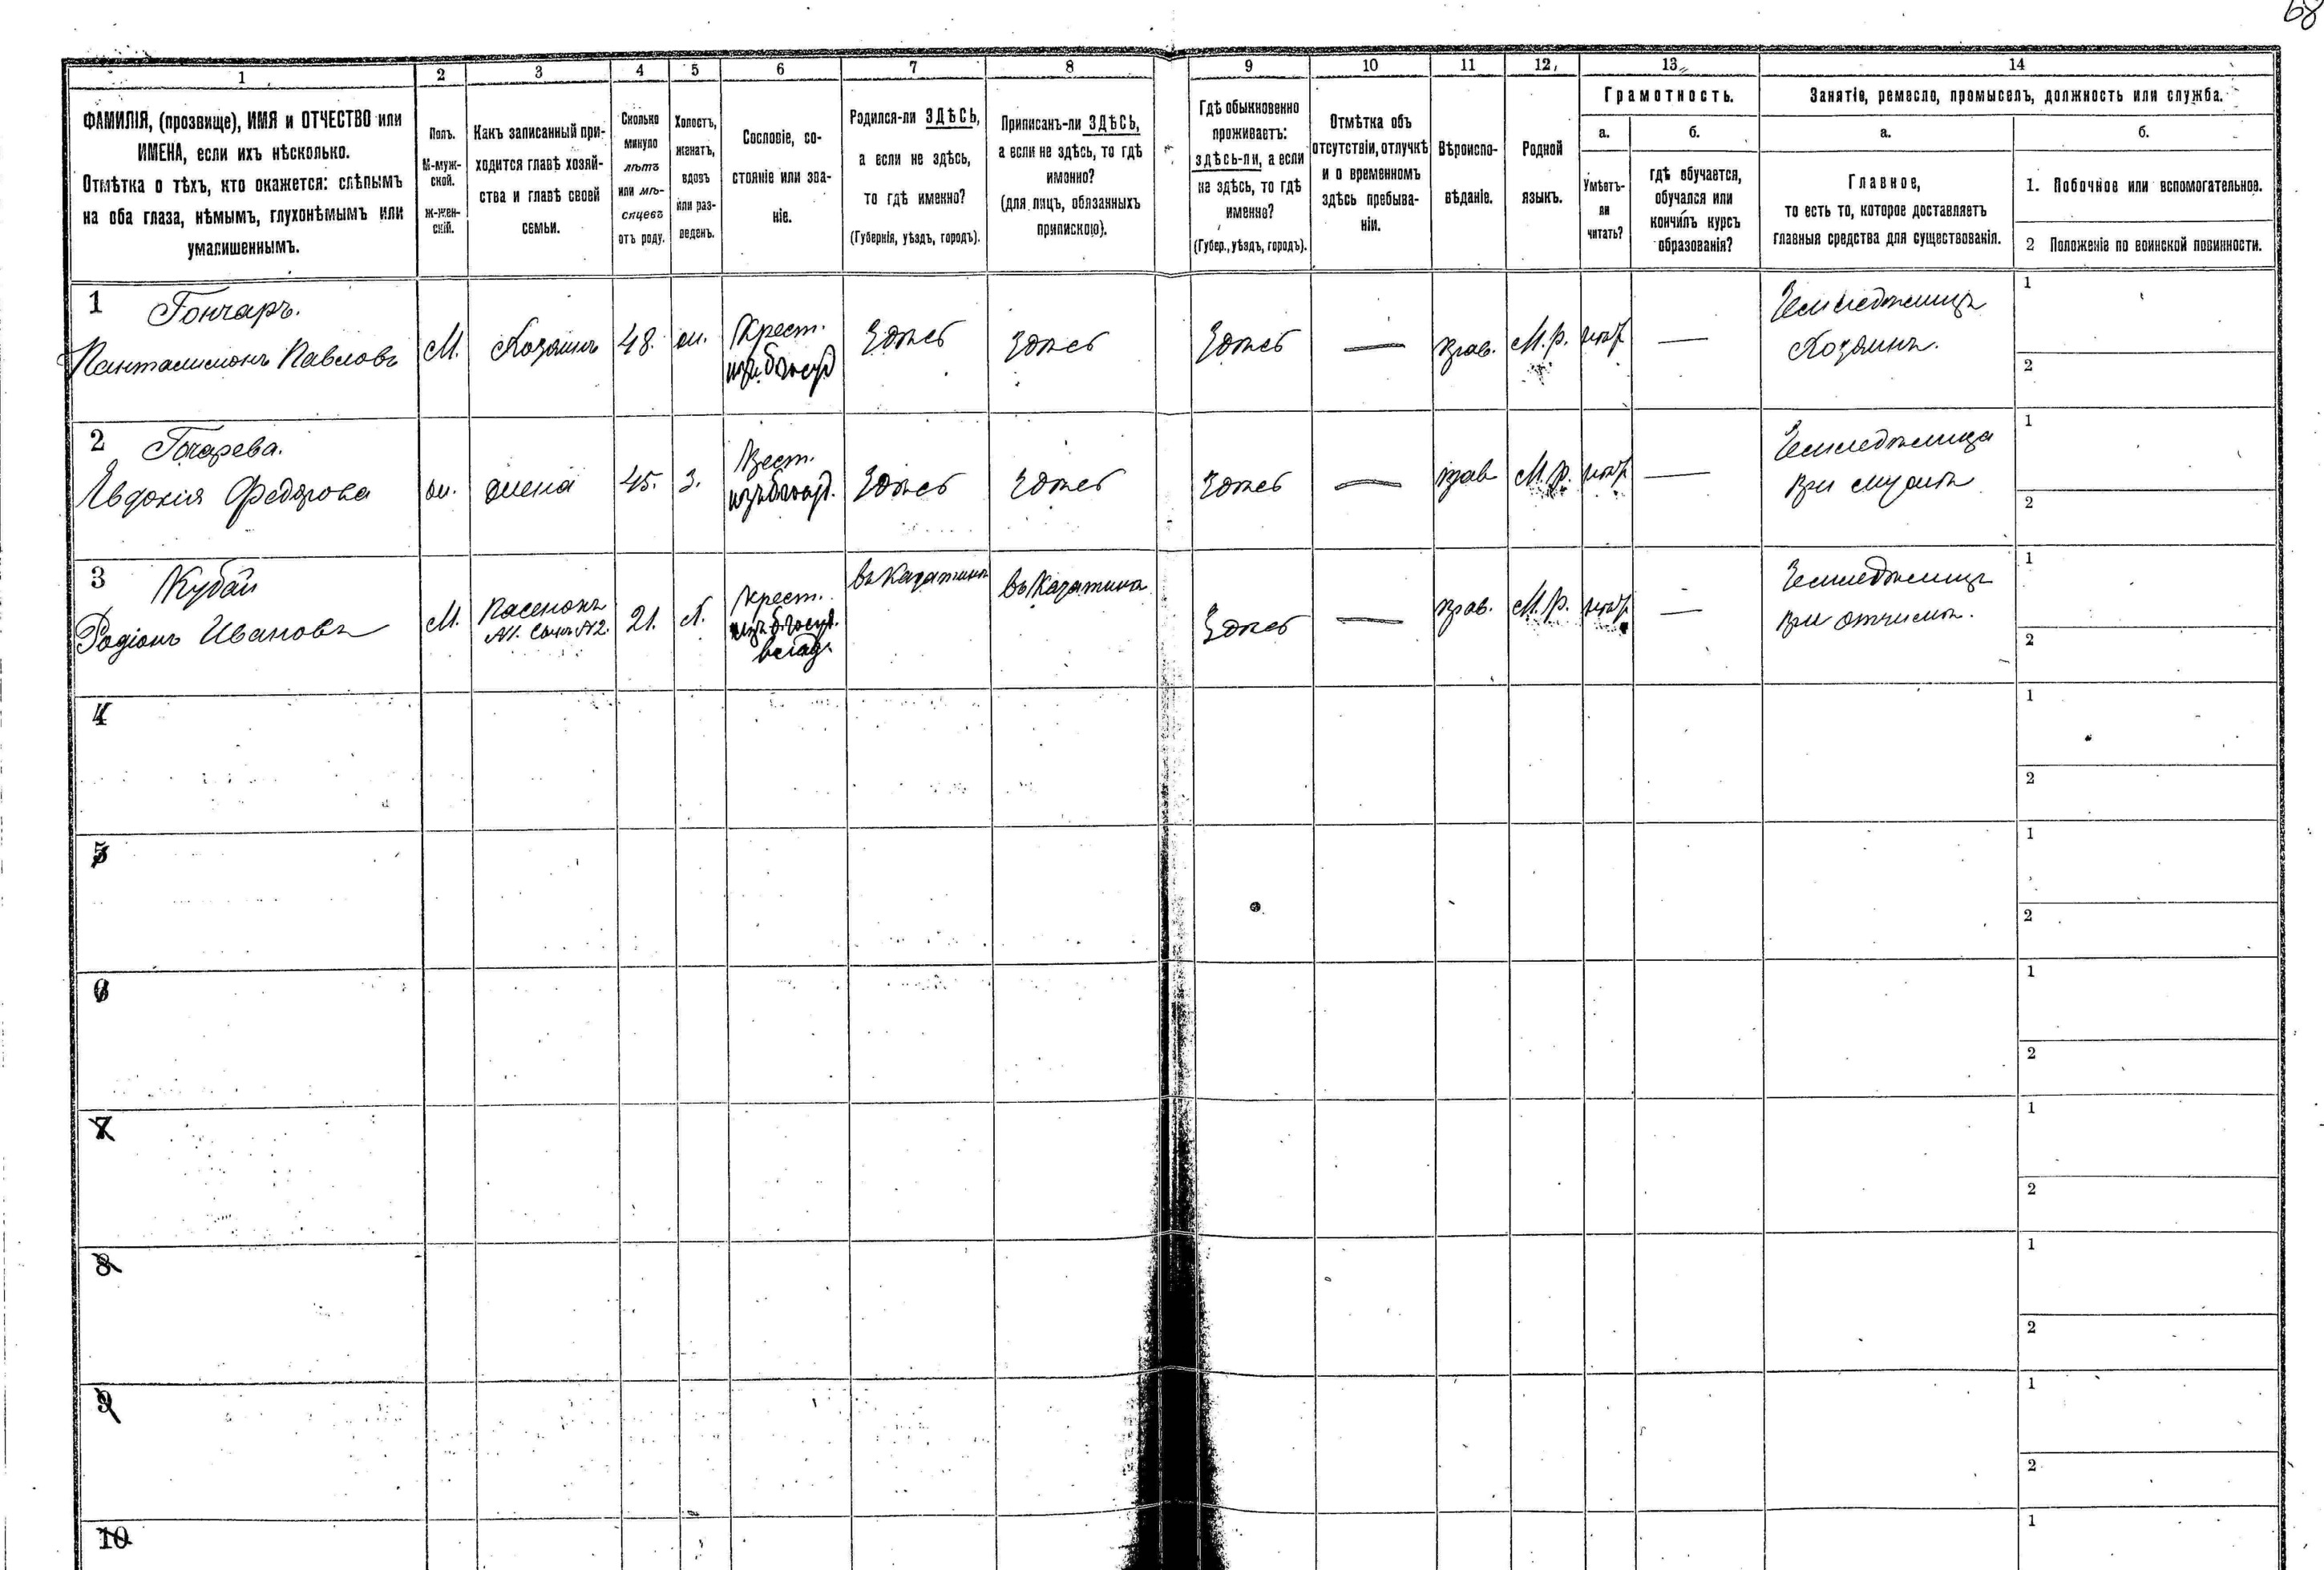 68
1 2 3 4 5 6 7 8 9 10 11 12 13 14
ФАМИЛІЯ, (прозвище), ИМЯ и ОТЧЕСТВО или
ИМЕНА, если ихъ нѣсколько.
Отмѣтка о тѣхъ, кто окажется: слѣпымъ
на оба глаза, нѣмымъ, глухонѣмымъ или
умалишеннымъ.
Полъ.
М-муж-
ской.
ж-жен-
скій.
Какъ записанный при-
ходится главѣ хозяй-
ства и главѣ своей
семьи.
Сколько
минуло
лѣтъ
или мѣ-
сяцевъ
отъ роду.
Холостъ,
женатъ,
вдовъ
или раз-
веденъ.
Сословіе, со-
стояніе или зва-
ніе.
Родился-ли ЗДѢСЬ,
а если не здѣсь,
то гдѣ именно?
(Губернія, уѣздъ, городъ).
Приписанъ-ли ЗДѢСЬ,
а если не здѣсь, то гдѣ
именно?
(для лицъ, обязанныхъ
припискою).
Гдѣ обыкновенно
проживаетъ:
здѣсь-ли, а если
не здѣсь, то гдѣ
именно?
(Губер., уѣздъ, городъ).
Отмѣтка объ
отсутствіи, отлучкѣ
и о временномъ
здѣсь пребыва-
ніи.
Вѣроиспо-
вѣданіе.
Родной
языкъ.
Грамотность.
а.
Умѣетъ-
ли
читать?
б.
гдѣ обучается,
обучался или
кончилъ курсъ
образованія?
Занятіе, ремесло, промыселъ, должность или служба.
а.
Главное,
то есть то, которое доставляетъ
главныя средства для существованія.
б.
1. Побочное или вспомогательное.
2 Положеніе по воинской повинности.
1 Гончаръ.
Панталимонъ Павловъ
М. Хозяинъ 48. ж. Крест. Здѣсь Здѣсь Здѣсь — прав. М.р. —
Земледѣлецъ
Хозяинъ.
1
2
2
Евдокія Федорова
ж. жена 45. З. Здѣсь Здѣсь Здѣсь — прав М.р. —
при мужѣ
1
2
3 Кубай
Родіонъ Ивановъ
М. Пасенокъ
21. Х. Крест.
въ Казатинѣ въ Казатинѣ Здѣсь — прав. М.р. —
Земледѣлецъ
при отчимѣ.
1
2
4
1
2
5
1
2
6
1
2
7
1
2
8
1
2
9
1
2
10
1